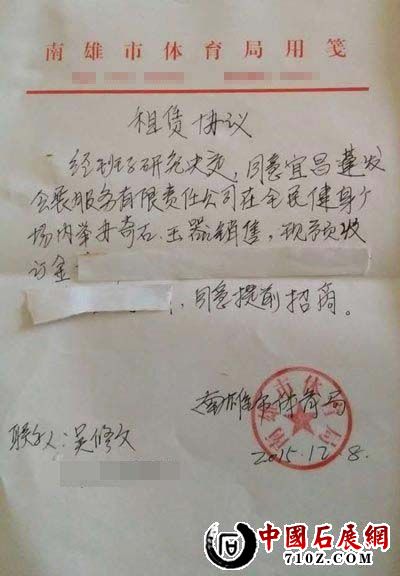 南雄市体育局用笺
租赁协议
经班子研究决定，同意宜昌莲发
会展服务有限责任公司在全民健身广
场内举办奇石、玉器销售，现预收
订金
，同意提前招商。
南雄市体育局
联系人：吴修文
2015.12.8.
南雄市体育局
中國石展網
710Z.COM